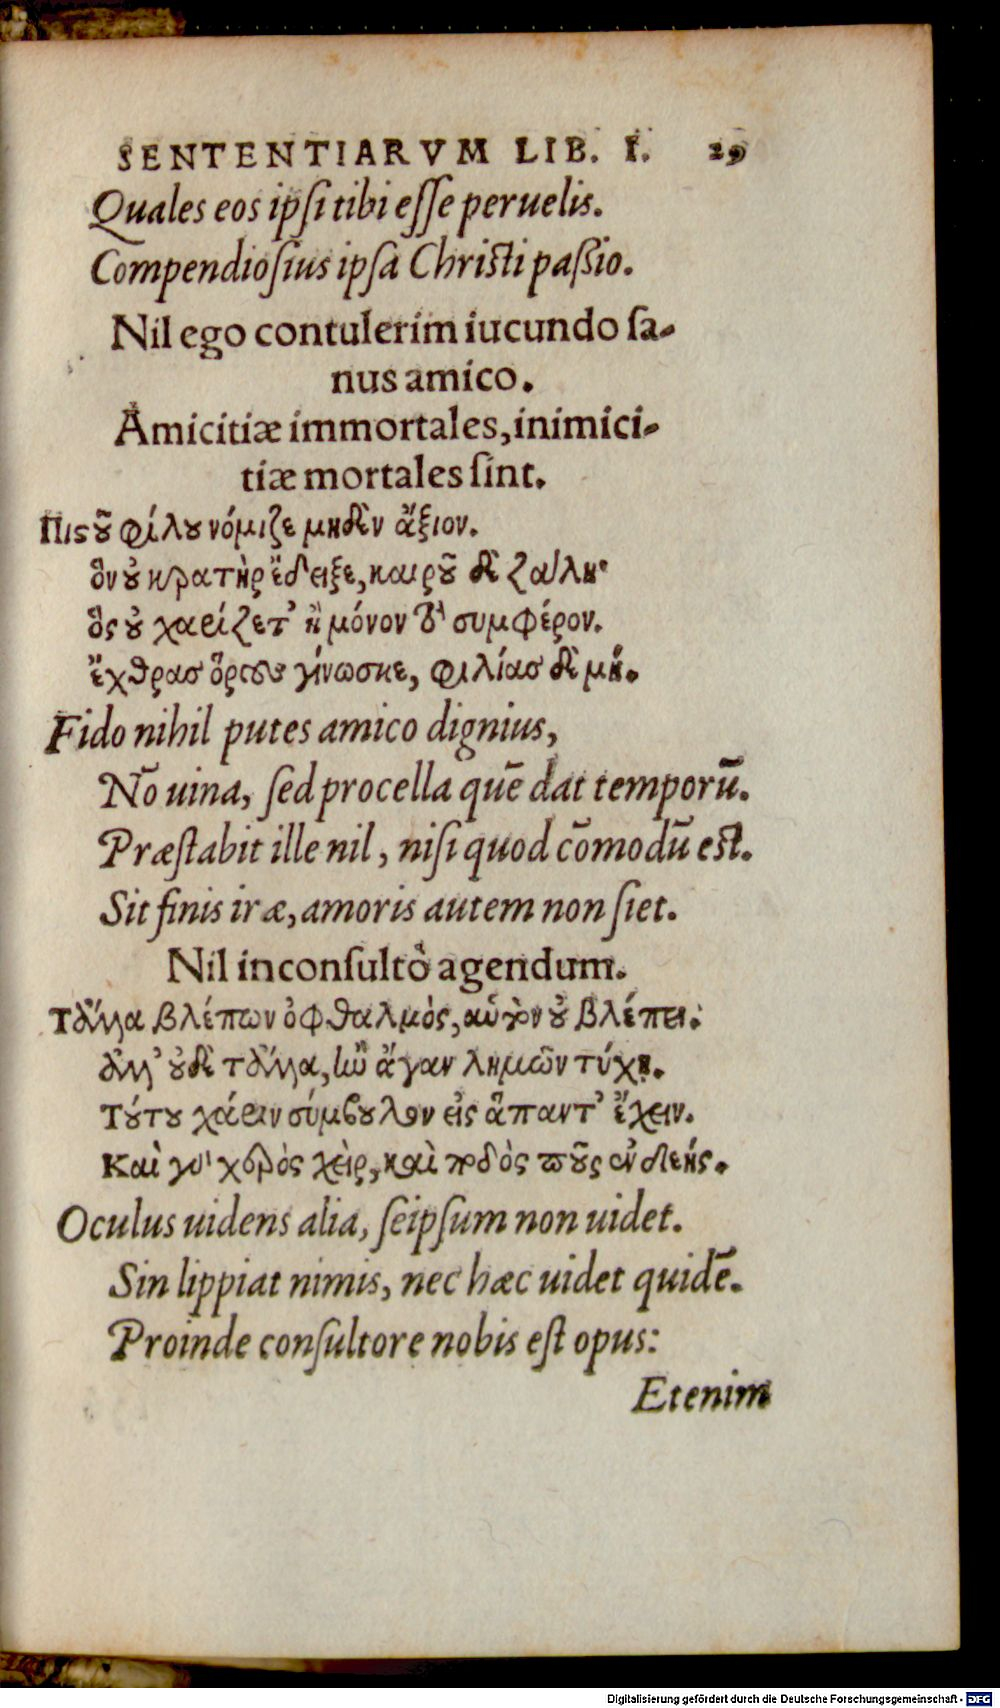 SENTENTIARVM LIB. I. 29
Quales eos ipſi tibi eſſe peruelis.
Compendioſius ipſa Chriſti paſsio.
Nil ego contulerim iucundo ſa-
nus amico.
Amicitiæ immortales, inimici-
tiæ mortales ſint.
Πιςοῦ φίλου νόμιζε μηδὲν ἄξιον.
ὃν οὐ κρατὴρ ἔδειξε, καιροῦ δὲ ζάλη·
ὃς οὐ χαρίζετ' ἢ μόνον τὸ συμφέρον.
ἔχθρας ὅρους γίνωσκε, φιλίας δὲ μή.
Fido nihil putes amico dignius,
Nō uina, ſed procella quē dat temporū.
Præſtabit ille nil, niſi quod cōmodū eſt.
Sit finis iræ, amoris autem non ſiet.
Nil inconſultò agendum.
Τἄλλα βλέπων ὀφθαλμὸς, αὑτὸν οὐ βλέπει:
ἀλλ' οὐδὲ τἄλλα, ἰὼ ἄγαν λημῶν τύχῃ.
Τούτου χάριν σύμβουλον εἰς ἅπαντ' ἔχειν.
Καὶ γὰρ χερὸς χεὶρ, καὶ ποδὸς ποῦς ἐνδεής.
Oculus uidens alia, ſeipſum non uidet.
Sin lippiat nimis, nec hæc uidet quidē.
Proinde conſultore nobis eſt opus:
Etenim
Digitalisierung gefördert durch die Deutsche Forschungsgemeinschaft - DFG